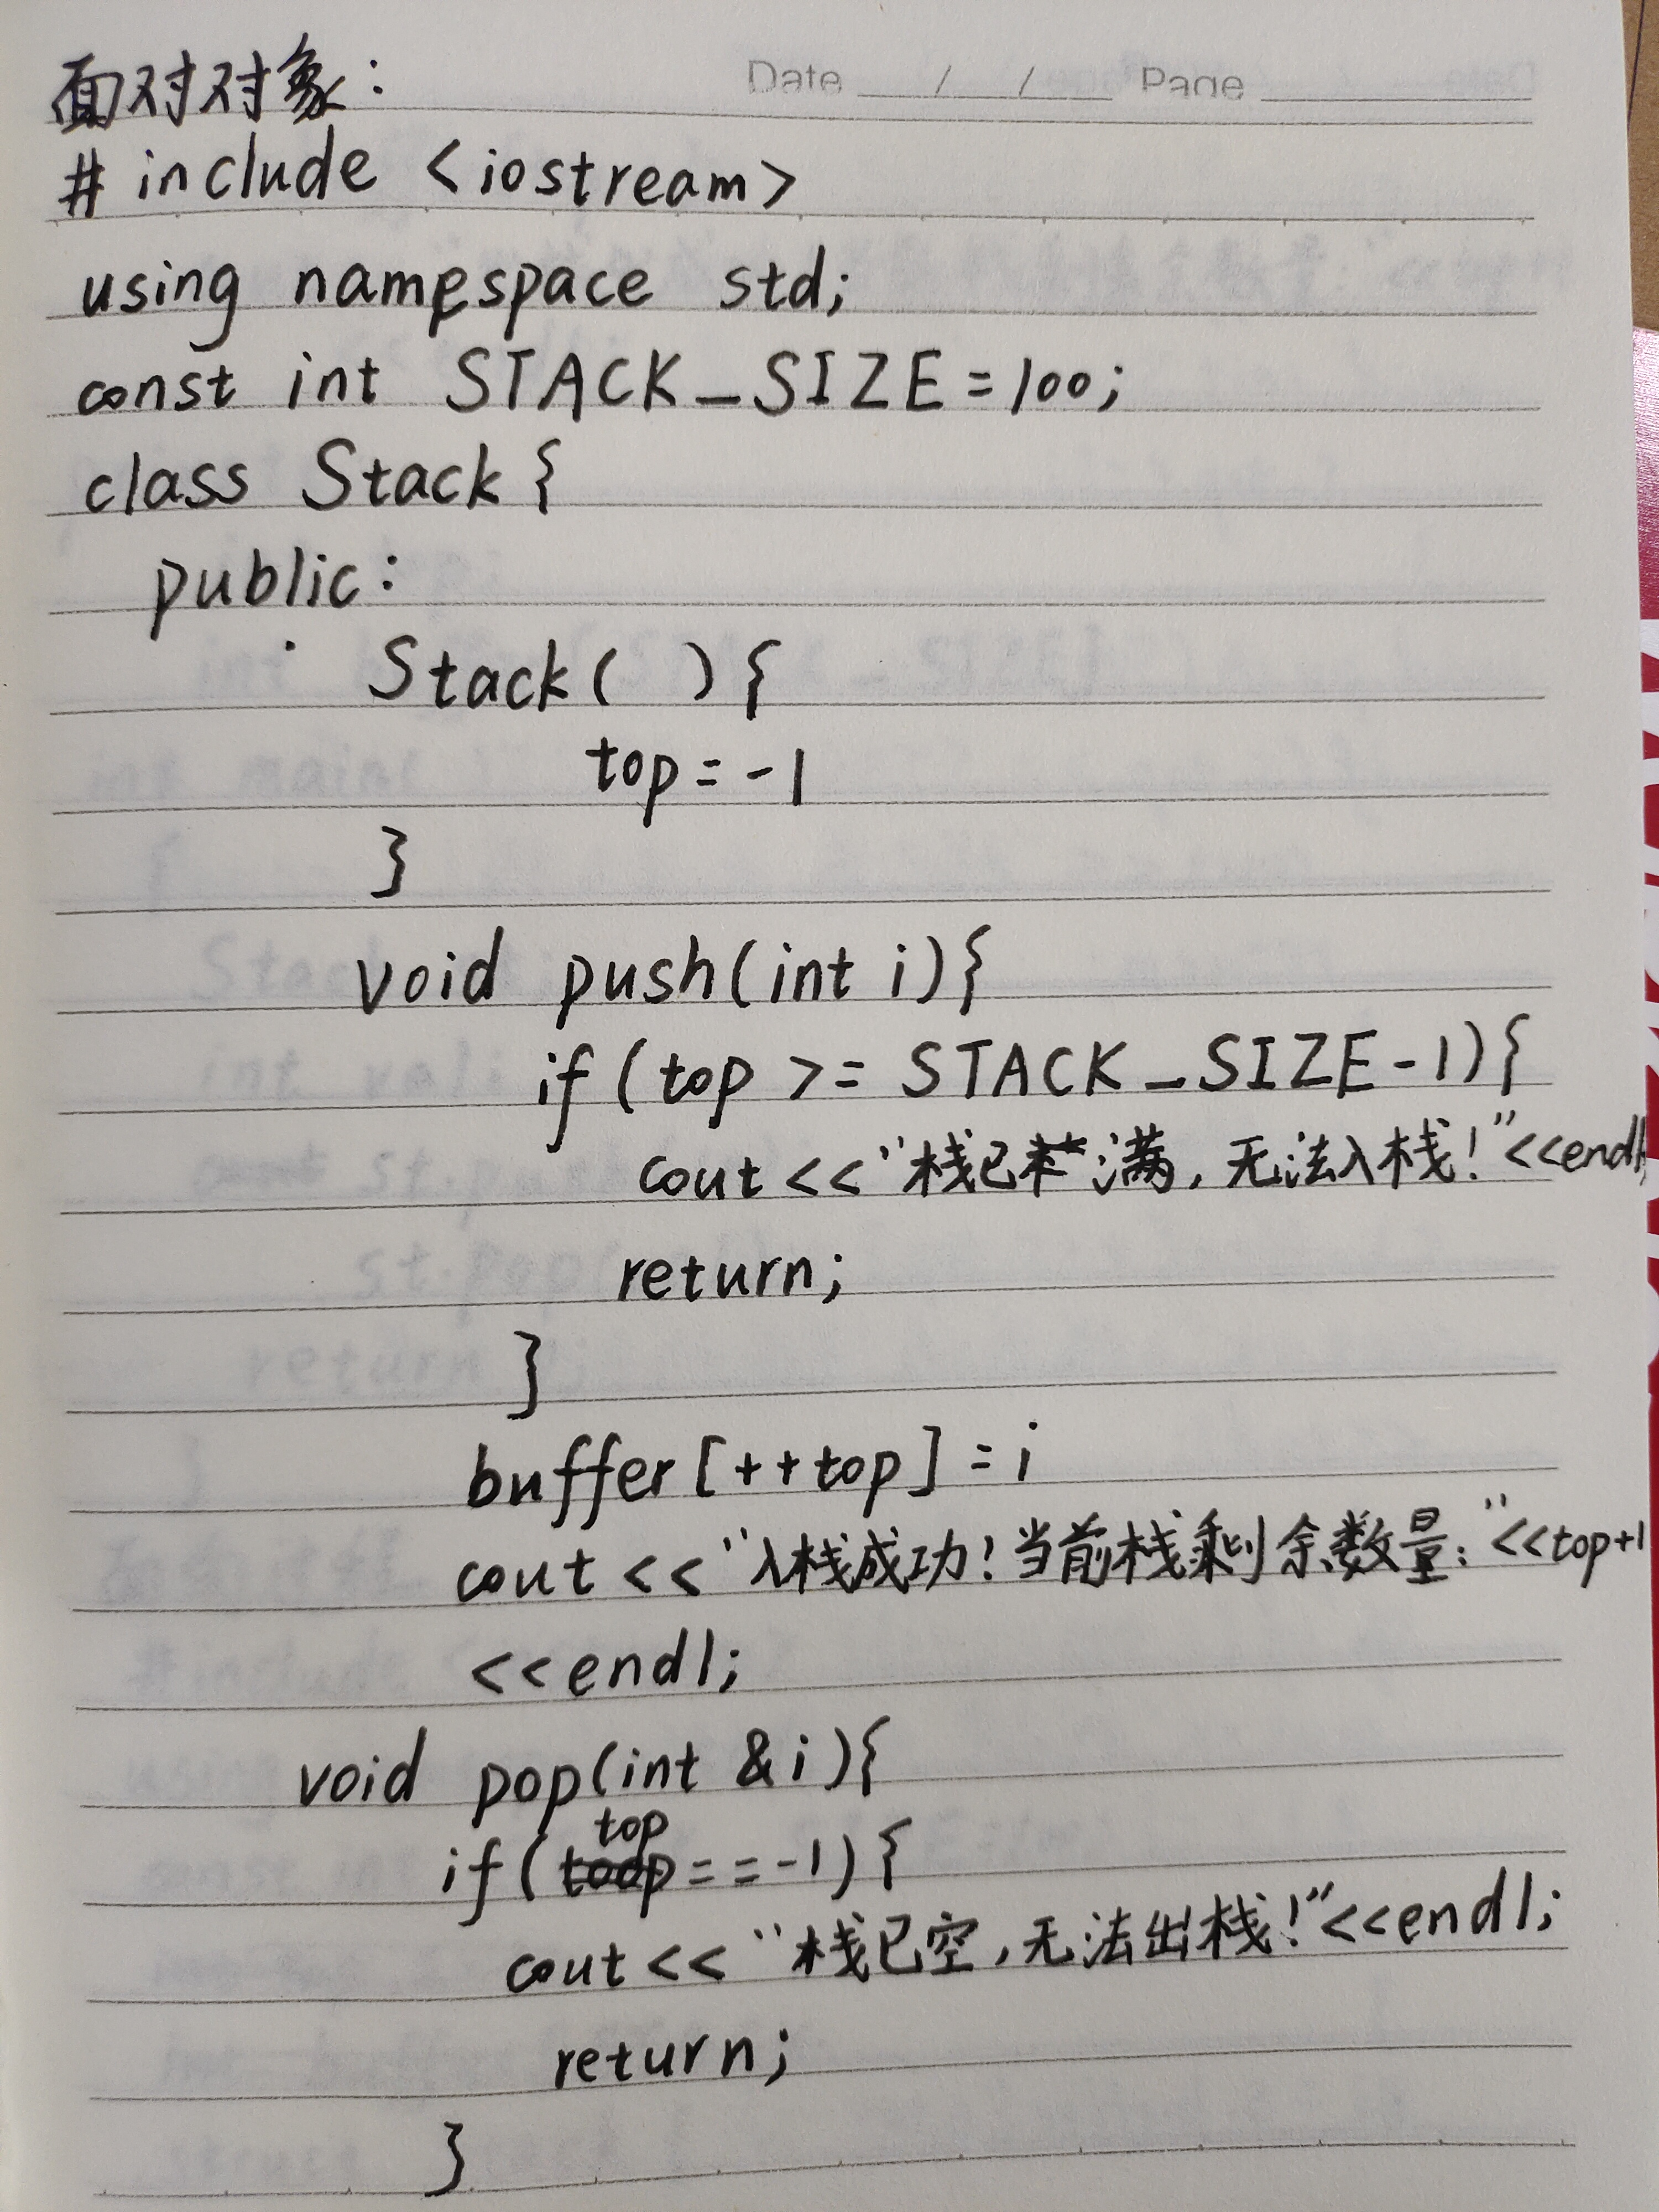 面对对象:
Date / / Page
# include <iostream>
using namespace std;
const int STACK_SIZE=100;
class Stack {
public:
Stack( ){
top=-1
}
void push(int i){
if (top >= STACK_SIZE-1){
cout <<"栈已满,无法入栈!"<<endl;
return;
}
buffer[++top]=i
cout <<"入栈成功!当前栈剩余数量:"<<top+1
<<endl;
void pop(int &i){
if(top==-1){
cout <<"栈已空,无法出栈!"<<endl;
return;
}